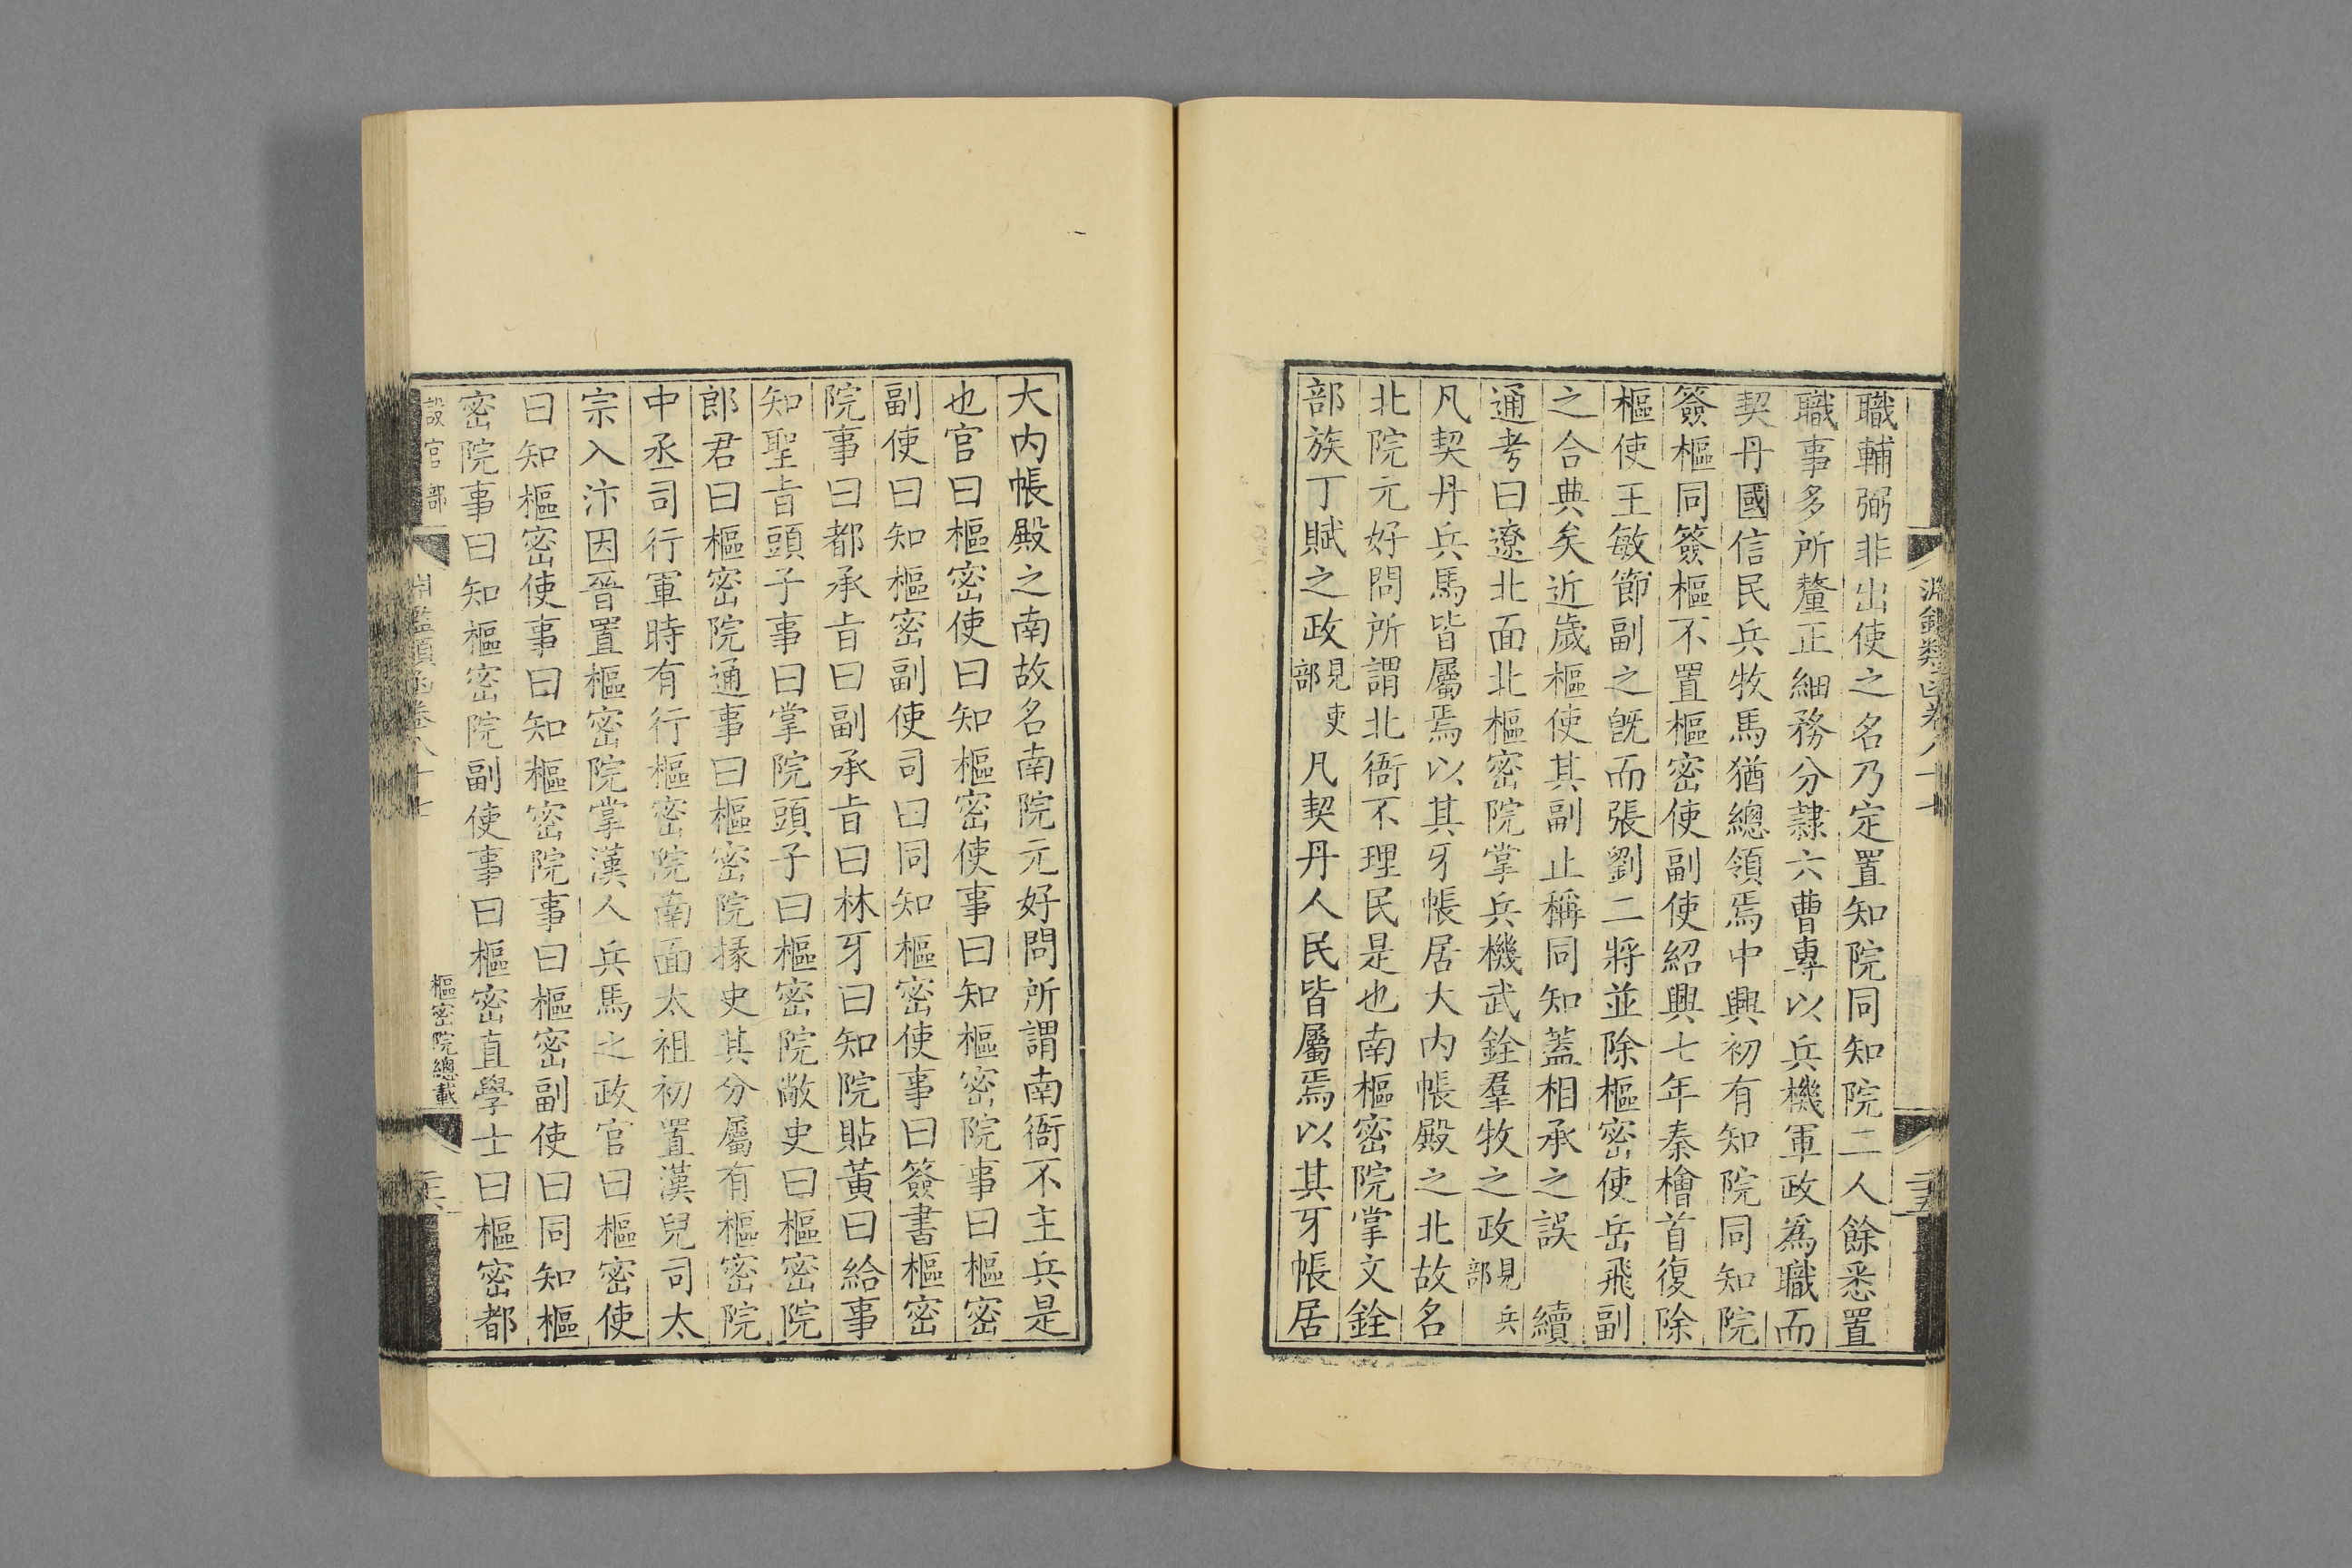 淵鑑類函卷八十七
二十五
職輔弼非出使之名乃定置知院同知院二人餘悉置
職事多所釐正細務分隷六曹專以兵機軍政爲職而
契丹國信民兵牧馬猶總領焉中興初有知院同知院
簽樞同簽樞不置樞密使副使紹興七年秦檜首復除
樞使王敏節副之旣而張劉二將並除樞密使岳飛副
之合典矣近歲樞使其副止稱同知蓋相承之誤 續
通考曰遼北面北樞密院掌兵機武銓羣牧之政見兵部
凡契丹兵馬皆屬焉以其牙帳居大內帳殿之北故名
北院元好問所謂北衙不理民是也南樞密院掌文銓
部族丁賦之政見吏部凡契丹人民皆屬焉以其牙帳居
大内帳殿之南故名南院元好問所謂南衙不主兵是
也官曰樞密使曰知樞密使事曰知樞密院事曰樞密
副使曰知樞密副使司曰同知樞密使事曰簽書樞密
院事曰都承旨曰副承旨曰林牙曰知院貼黃曰給事
知聖旨頭子事曰掌院頭子曰樞密院敞史曰樞密院
郎君曰樞密院通事曰樞密院掾史其分屬有樞密院
中丞司行軍時有行樞密院南面太祖初置漢兒司太
宗入汴因晉置樞密院掌漢人兵馬之政官曰樞密使
曰知樞密使事曰知樞密院事曰樞密副使曰同知樞
密院事曰知樞密院副使事曰樞密直學士曰樞密都
設官部
淵鑑類函卷八十七
樞密院總載
二十六